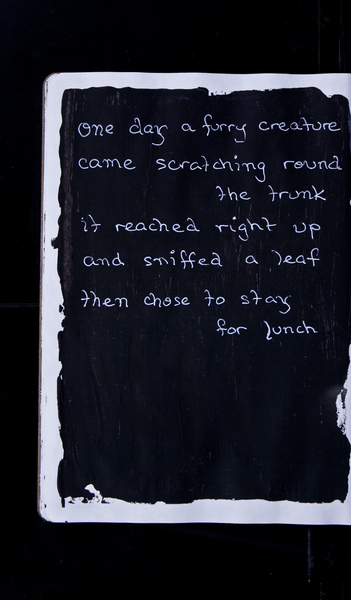 one day a furry creature
came scratching round
the trunk
it reached right up
and sniffed a leaf
then chose to stay
for lunch